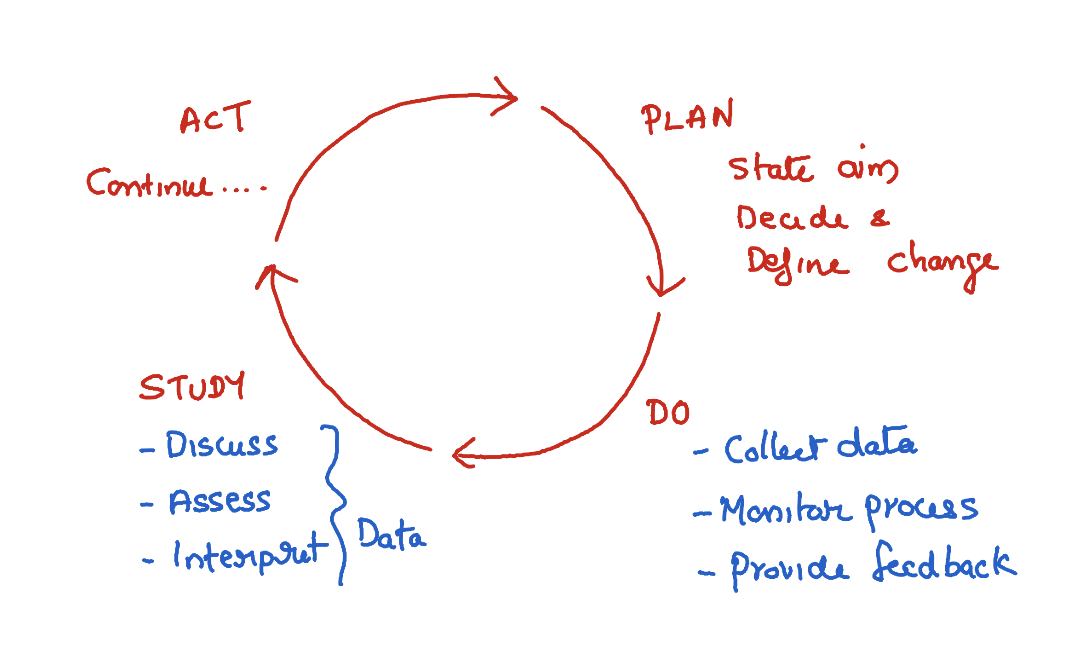 ACT
Continue ....
PLAN
State aim
Decide &
Define change
DO
- Collect data
- Monitor process
- Provide feedback
STUDY
- Discuss
- Assess
- Interpret
Data